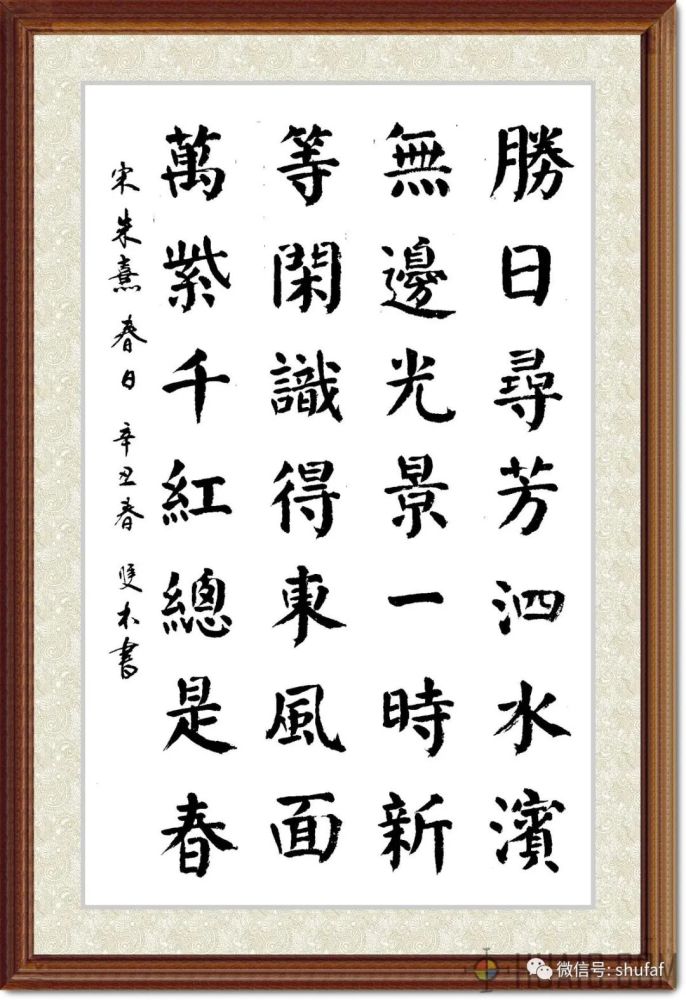 勝日尋芳泗水濱
無邊光景一時新
等閑識得東風面
萬紫千紅總是春
宋朱熹春日 辛丑春 雙木書
微信号: shufaf